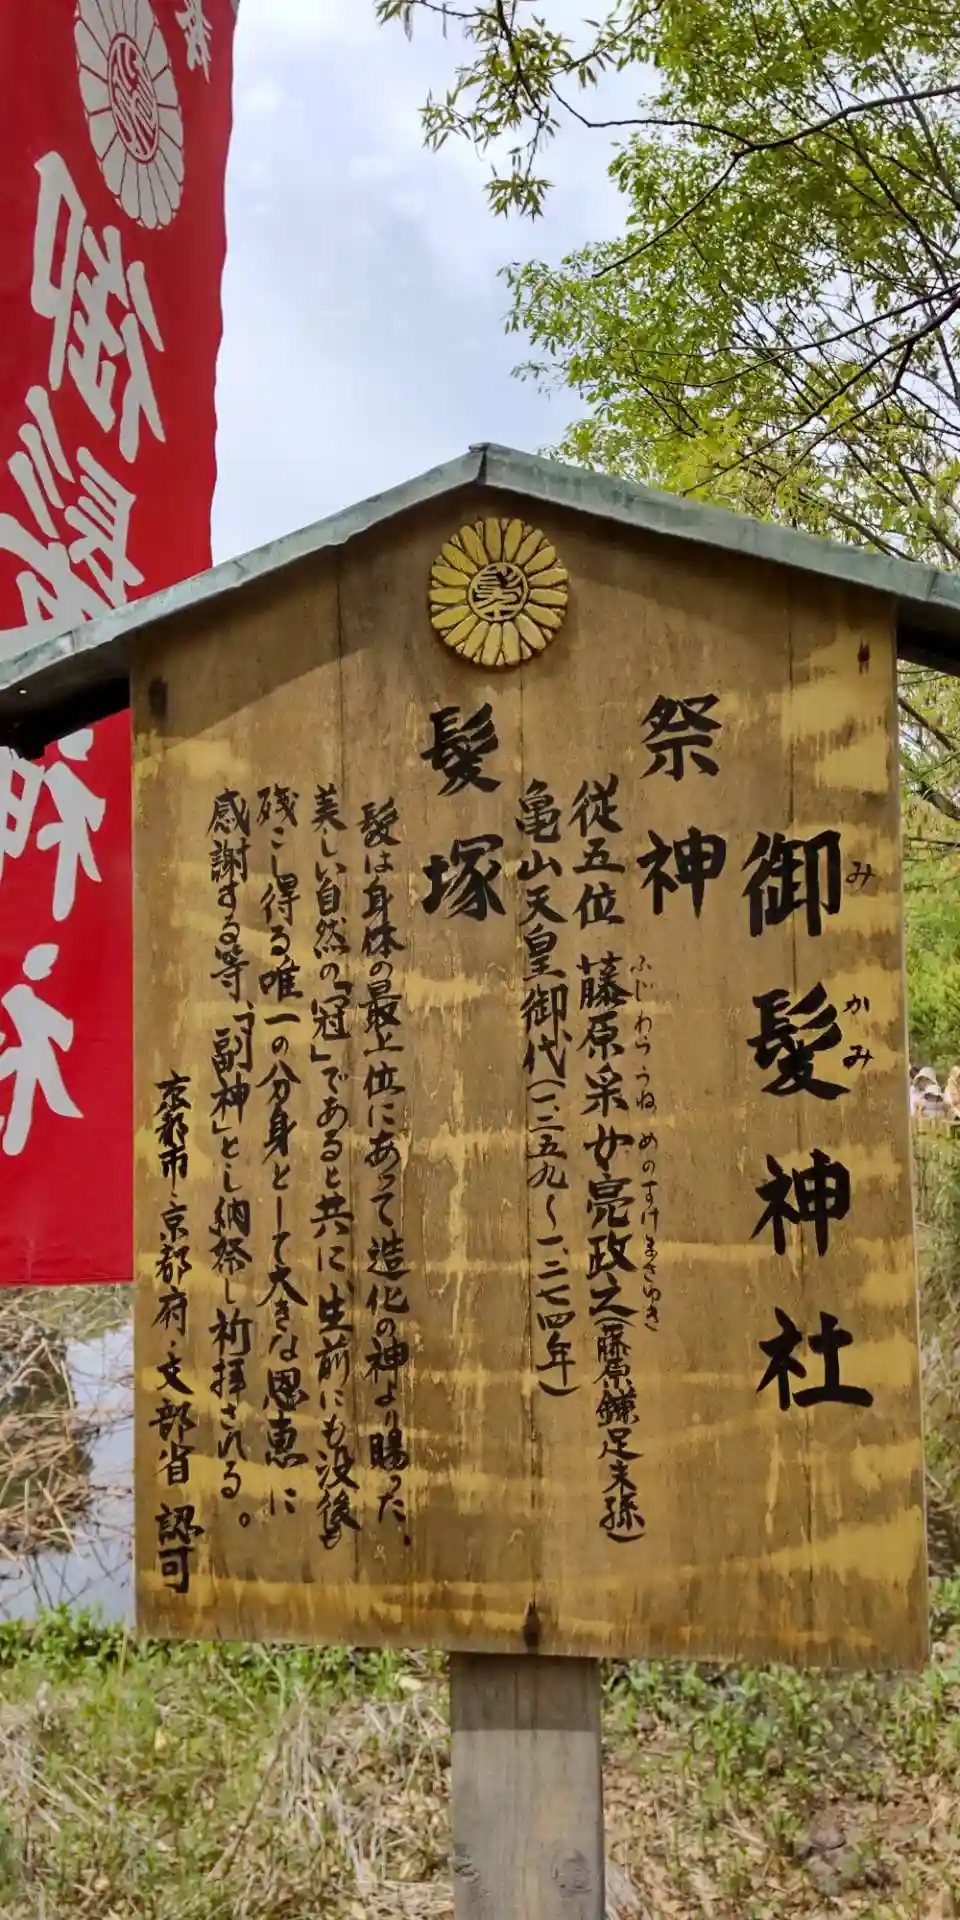 御髪神社
みかみ
祭神
従五位 藤原采女亮政之(藤原鎌足末孫)
ふじわらうねめのすけまさゆき
亀山天皇御代(一、二五九～一、二七四年)
髪塚
髪は身体の最上位にあって造化の神より賜った、
美しい自然の「冠」であると共に、生前にも没後も
残こし得る唯一の分身として大きな恩恵に
感謝する等、「副神」とし納祭し祈拝される。
京都市・京都府・文部省 認可
髪
御髪神社